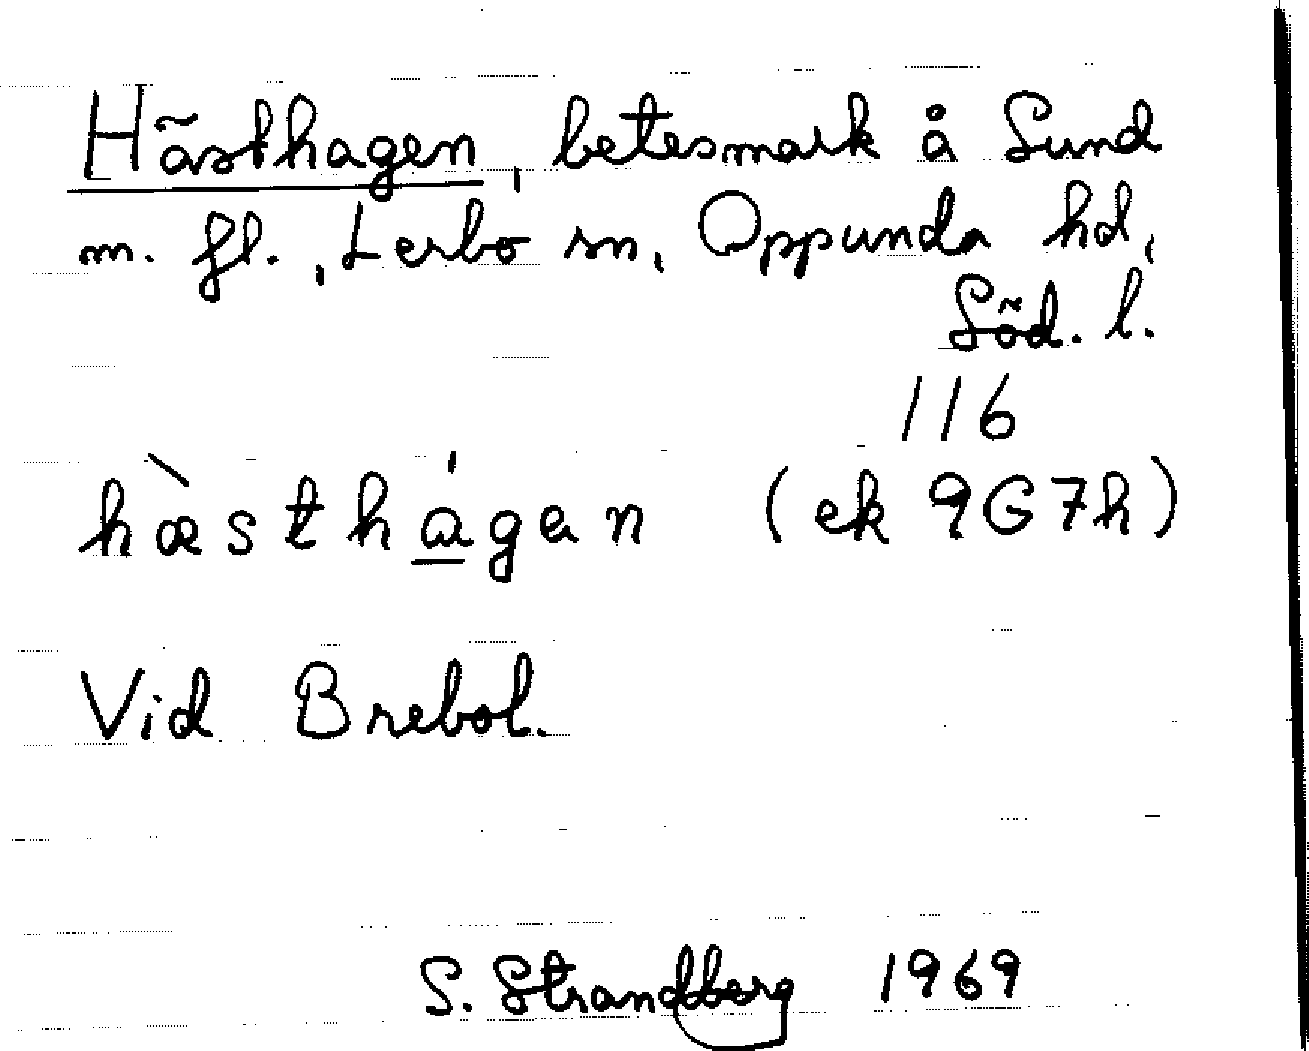 Hästhagen, betesmark å Sund
m. fl., Lerbo sn, Oppunda hd,
Söd. l.
116
hæ̀sthágen (ek 9G7h)
Vid Brebol.
S. Strandberg 1969